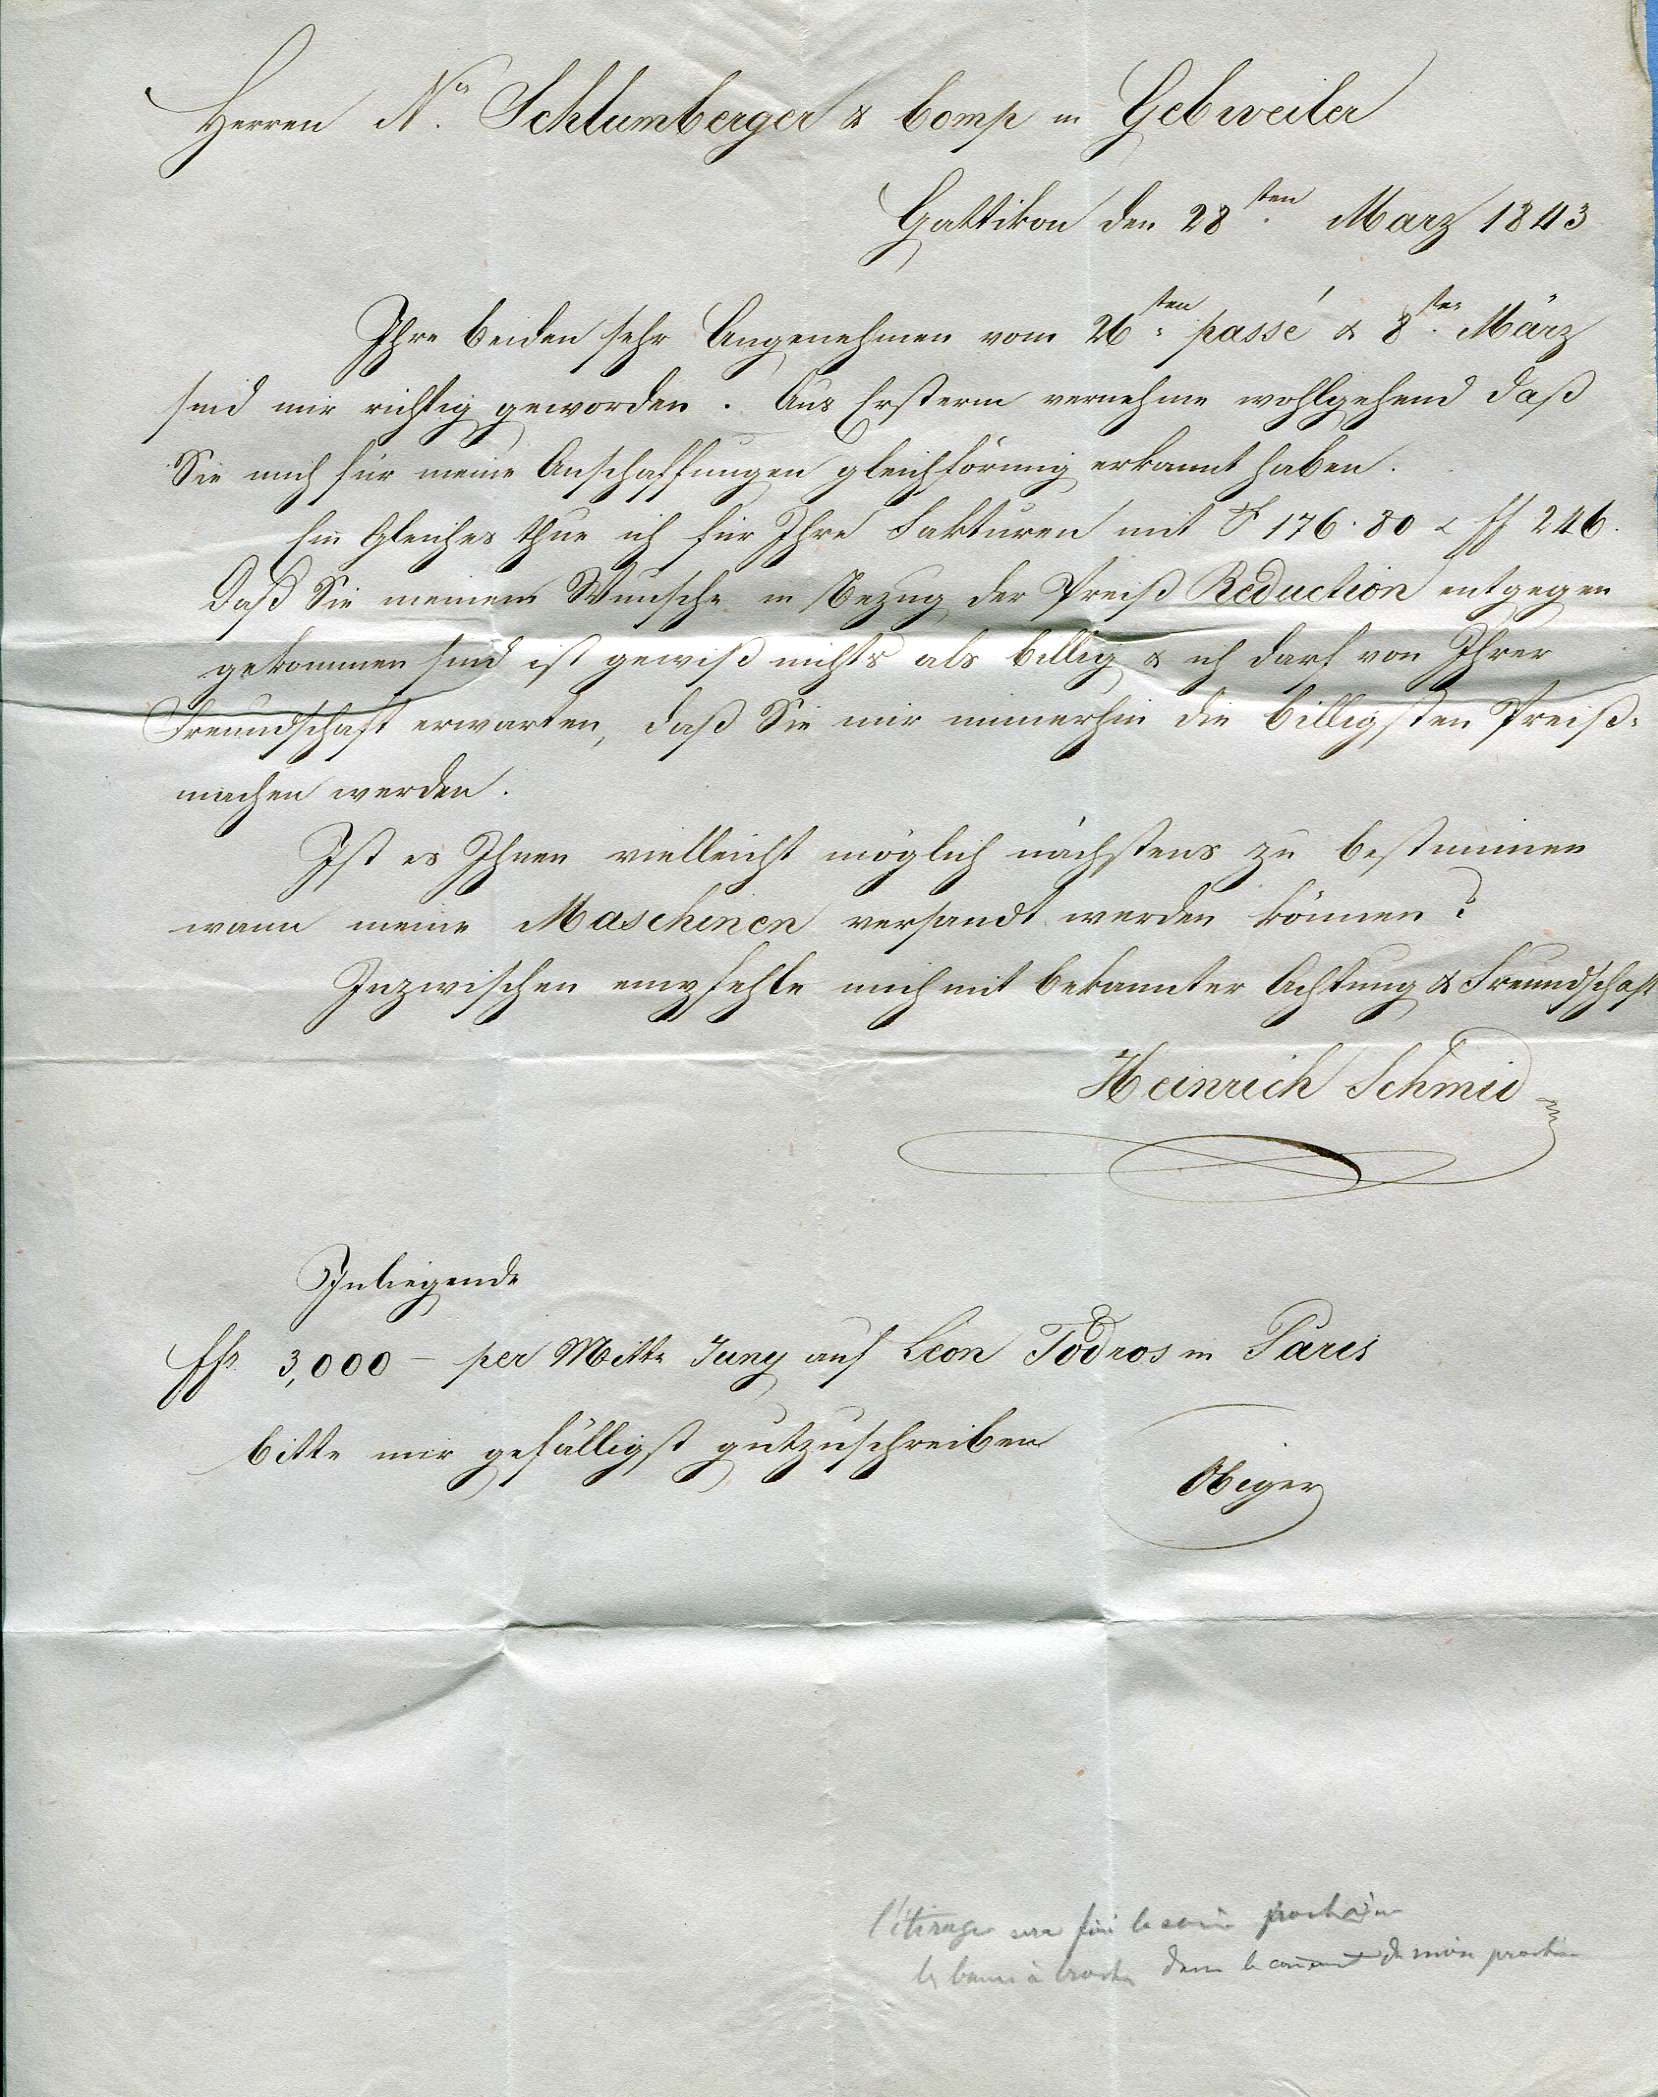 Herren N. Schlumberger & Comp in Gebweiler
Gattikon den 28sten Marz 1843
Ihre beiden sehr Angenehmen vom 26sten passé & 8ten März
sind mir richtig geworden. Aus Ersterm vernehme wohlgehend daß
Sie mich für meine Anschaffungen gleichförmig erkannt haben.
Ein Gleiches thue ich für Ihre Fakturen mit 176.80 & ff 246.
Daß Sie meinem Wunsche in Bezug der Preiß Reduction entgegen
gekommen sind ist gewiß nichts als billig & ich darf von Ihrer
Freundschaft erwarten, daß Sie mir immerhin die billigsten Preiße
machen werden.
Ist es Ihnen vielleicht möglich nächstens zu bestimmen
wann meine Maschinen versandt werden können?
Inzwischen empfehle mich mit bekannter Achtung & Freundschaft
Heinrich Schmid
Inliegende
ffs 3,000 – per Mitte Juny auf Leon Todros in Paris
bitte mir gefälligst gutzuschreiben
Obiger
l'étirage sera fini la prochaine
les bancs à broches dans le courant du mois prochain